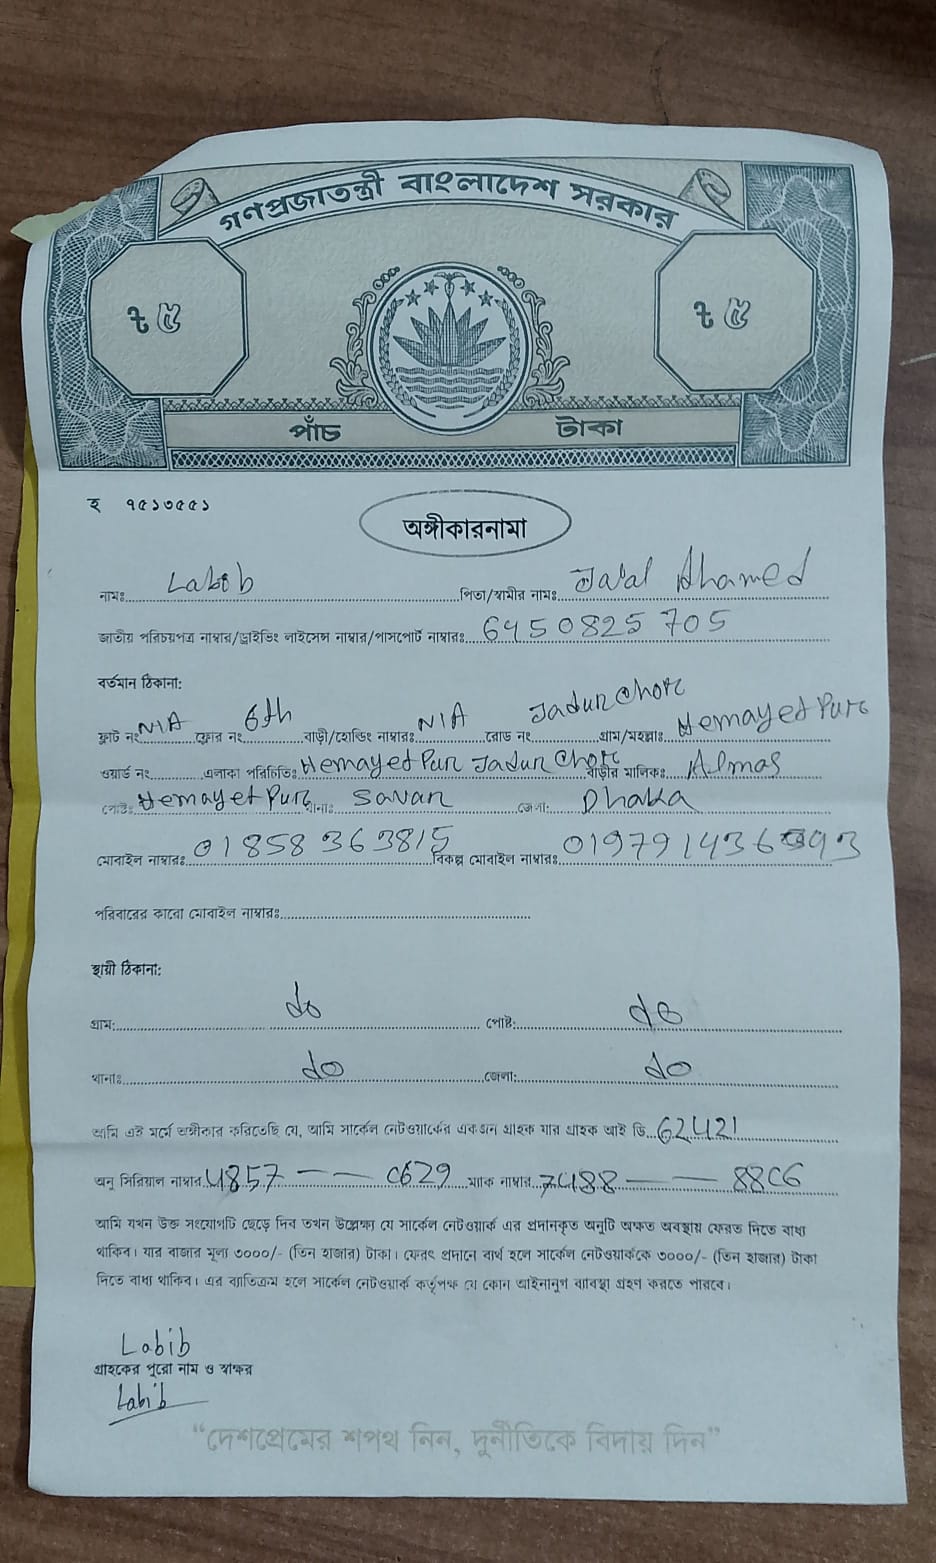 গণপ্রজাতন্ত্রী বাংলাদেশ সরকার
৳ ৫ ৳ ৫
পাঁচ টাকা
হ ৭৫১৩৫৫১
অঙ্গীকারনামা
নামঃ Labib পিতা/স্বামীর নামঃ Jalal Ahamed
জাতীয় পরিচয়পত্র নাম্বার/ড্রাইভিং লাইসেন্স নাম্বার/পাসপোর্ট নাম্বারঃ 6450825705
বর্তমান ঠিকানা:
ফ্লাট নং N/A ফ্লোর নং 6th বাড়ী/হোল্ডিং নাম্বারঃ N/A রোড নং Jadur Chor গ্রাম/মহল্লাঃ Hemayet Pur
ওয়ার্ড নং এলাকা পরিচিতিঃ Hemayet Pur Jadur Chor বাড়ীর মালিকঃ Almas
পোষ্টঃ Hemayet Pur থানাঃ Savar জেলা: Dhaka
মোবাইল নাম্বারঃ 01858363815 বিকল্প মোবাইল নাম্বারঃ
পরিবারের কারো মোবাইল নাম্বারঃ
স্থায়ী ঠিকানা:
গ্রাম: do পোষ্ট: do
থানাঃ do জেলা: do
আমি এই মর্মে অঙ্গীকার করিতেছি যে, আমি সার্কেল নেটওয়ার্কের একজন গ্রাহক যার গ্রাহক আই ডি 62421
অনু সিরিয়াল নাম্বার 4857 — — C629 ম্যাক নাম্বার 7488 — — 88C6
আমি যখন উক্ত সংযোগটি ছেড়ে দিব তখন উল্লেক্ষ্য যে সার্কেল নেটওয়ার্ক এর প্রদানকৃত অনুটি অক্ষত অবস্থায় ফেরত দিতে বাধ্য
থাকিব। যার বাজার মূল্য ৩০০০/- (তিন হাজার) টাকা। ফেরৎ প্রদানে ব্যর্থ হলে সার্কেল নেটওয়ার্ককে ৩০০০/- (তিন হাজার) টাকা
দিতে বাধ্য থাকিব। এর ব্যতিক্রম হলে সার্কেল নেটওয়ার্ক কর্তৃপক্ষ যে কোন আইনানুগ ব্যবস্থা গ্রহণ করতে পারবে।
Labib
গ্রাহকের পুরো নাম ও স্বাক্ষর
Labib
“দেশপ্রেমের শপথ নিন, দুর্নীতিকে বিদায় দিন”